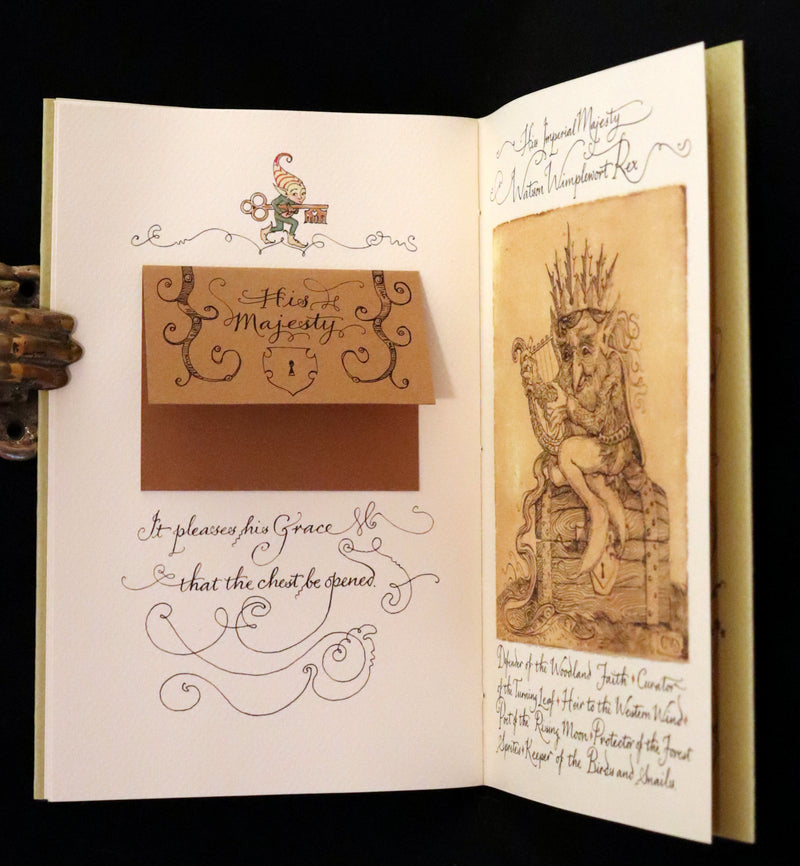 His
Majesty
It pleases his Grace
that the chest be opened.
His Imperial Majesty
Watson Wimplewort Rex
Defender of the Woodland Faith • Curator
of the Turning Leaf • Heir to the Western Wind •
Poet of the Rising Moon • Protector of the Forest
Sprites • Keeper of the Birds and Snails